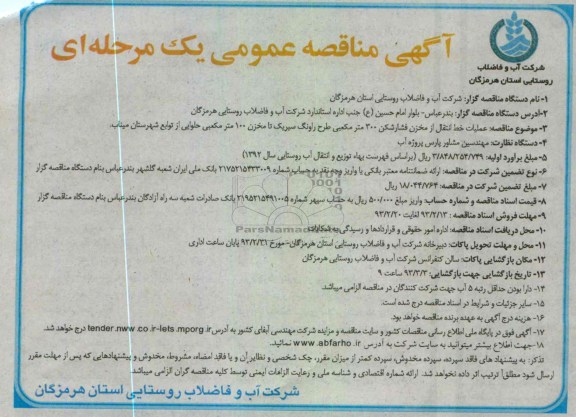 شرکت آب و فاضلاب
روستایی استان هرمزگان
آگهی مناقصه عمومی یک مرحله‌ای
۱-نام دستگاه مناقصه گزار: شرکت آب و فاضلاب روستایی استان هرمزگان
۲-آدرس دستگاه مناقصه گزار: بندرعباس- بلوار امام حسین (ع) جنب اداره استاندارد شرکت آب و فاضلاب روستایی هرمزگان
۳-موضوع مناقصه: عملیات خط انتقال از مخزن فشارشکن ۳۰۰ متر مکعبی طرح راونگ سیریک تا مخزن ۱۰۰ متر مکعبی حلوایی از توابع شهرستان میناب.
۴-دستگاه نظارت: مهندسین مشاور پارس پروژه آب
۵-مبلغ برآورد اولیه: ۳/۸۳۸/۲۵۳/۷۴۹ ریال (براساس فهرست بهاء توزیع و انتقال آب روستایی سال ۱۳۹۲)
۶-نوع تضمین شرکت در مناقصه: ارائه ضمانتنامه معتبر بانکی یا واریز وجه نقد به حساب شماره ۲۱۷۵۲۱۵۴۳۳۰۰۹ بانک ملی ایران شعبه گلشهر بندرعباس بنام دستگاه مناقصه گزار
۷-مبلغ تضمین شرکت در مناقصه: ۱۸/۰۴۴/۷۶۴ ریال
۸-قیمت اسناد مناقصه و شماره حساب: واریز مبلغ ۵۰۰/۰۰۰ ریال به حساب سپهر شماره ۲۱۹۵۲۱۵۴۹۱۰۰۵ بانک صادرات شعبه سه راه آزادگان بندرعباس بنام دستگاه مناقصه گزار
۹-مهلت فروش اسناد مناقصه: ۹۳/۲/۱۳ لغایت ۹۳/۲/۲۰
۱۰-محل دریافت اسناد مناقصه: اداره امور حقوقی و قراردادها و رسیدگی به شکایات
۱۱-محل و مهلت تحویل پاکات: دبیرخانه شرکت آب و فاضلاب روستایی استان هرمزگان-مورخ ۹۳/۲/۳۱ پایان ساعت اداری
۱۲-مکان بازگشایی پاکات: سالن کنفرانس شرکت آب و فاضلاب روستایی هرمزگان
۱۳-تاریخ بازگشایی جهت بازگشایی: ۹۳/۳/۳ ساعت ۹
۱۴- دارا بودن حداقل رتبه ۵ آب جهت شرکت کنندگان در مناقصه الزامی میباشد.
۱۵- سایر جزئیات و شرایط در اسناد مناقصه درج شده است.
۱۶- هزینه درج آگهی به عهده برنده مناقصه خواهد بود.
۱۷- آگهی فوق در پایگاه ملی اطلاع رسانی مناقصات کشور و سایت مناقصه و مزایده شرکت مهندسی آبفای کشور به آدرس tender.nww.co.ir-iets.mporg.ir درج خواهد شد.
۱۸-جهت اطلاع بیشتر میتوانید به سایت شرکت به آدرس www.abfarho.ir نمائید.
تذکر: به پیشنهاد های فاقد سپرده، سپرده مخدوش، سپرده کمتر از میزان مقرر، چک شخصی و نظایر آن و یا فاقد امضاء، مشروط، مخدوش و پیشنهادهایی که پس از مهلت مقرر
ارسال شود مطلقاً ترتیب اثر داده نخواهد شد. ارائه شماره اقتصادی و شناسه ملی و رعایت الزامات ایمنی توسط کلیه مناقصه گران الزامی میباشد.
شرکت آب و فاضلاب روستایی استان هرمزگان